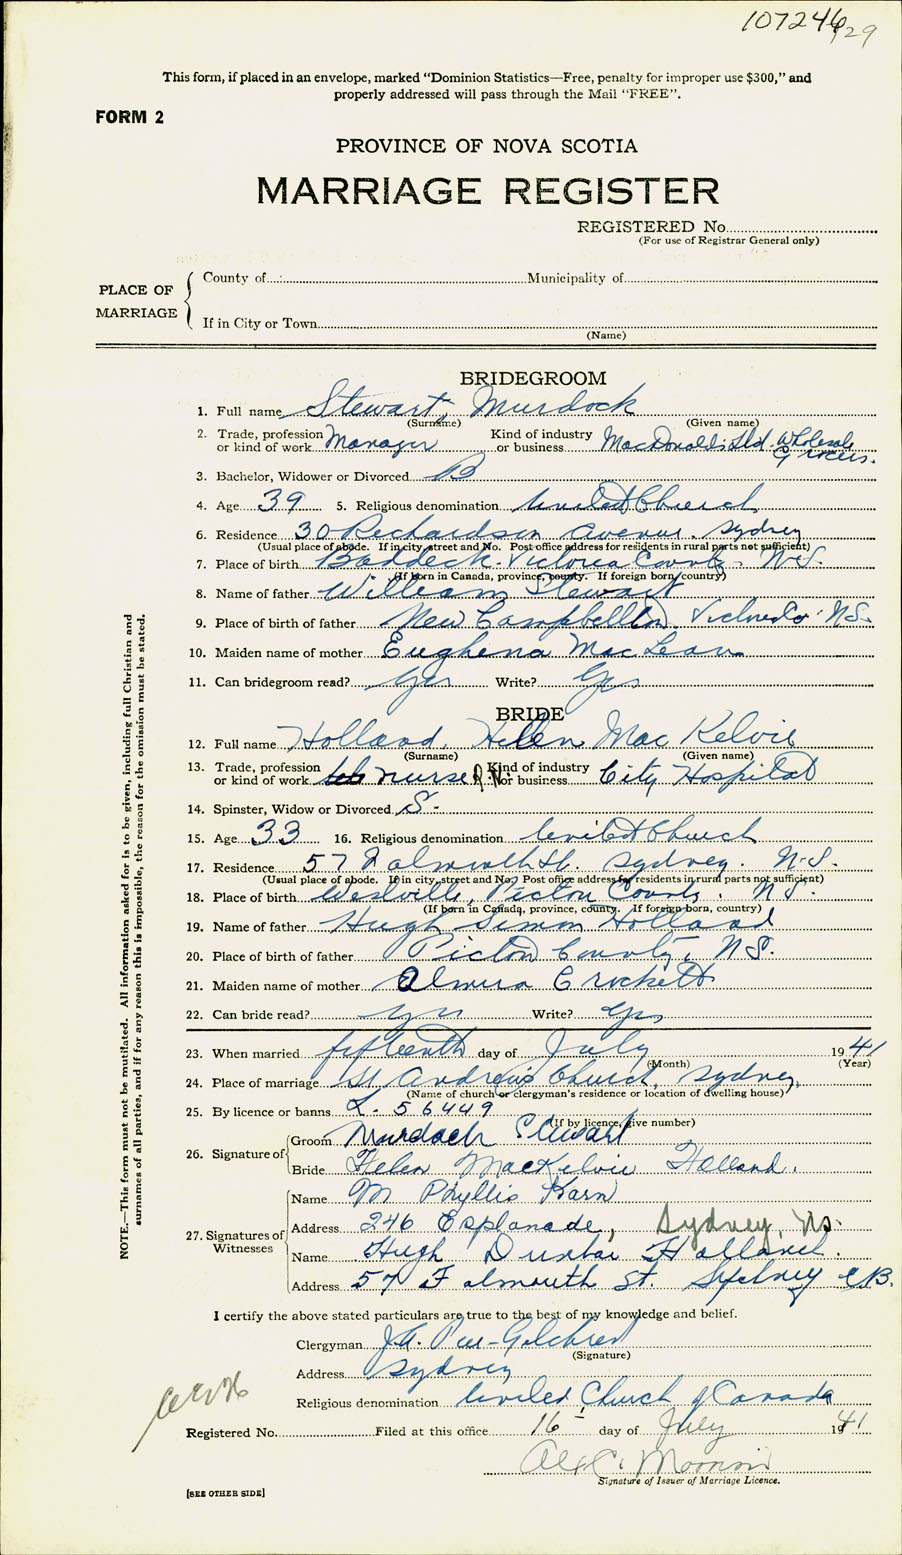 107246
This form, if placed in an envelope, marked “Dominion Statistics—Free, penalty for improper use $300,” and
properly addressed will pass through the Mail “FREE”.
FORM 2
PROVINCE OF NOVA SCOTIA
MARRIAGE REGISTER
REGISTERED No.
(For use of Registrar General only)
PLACE OF MARRIAGE
County of Municipality of
If in City or Town
(Name)
BRIDEGROOM
1. Full name Stewart, Murdock
(Surname) (Given name)
2. Trade, profession or kind of work Manager Kind of industry or business MacDonalds Ltd. Wholesale Grocers.
3. Bachelor, Widower or Divorced B
4. Age 39 5. Religious denomination United Church
6. Residence 30 Richardson Avenue. Sydney
(Usual place of abode. If in city, street and No. Post office address for residents in rural parts not sufficient)
7. Place of birth Baddeck. Victoria County. N.S.
(If born in Canada, province, county. If foreign born, country)
8. Name of father William Stewart
9. Place of birth of father New Campbellton. Victoria Co. N.S.
10. Maiden name of mother Eughena MacLean
11. Can bridegroom read? Yes Write? Yes
BRIDE
12. Full name Holland, Helen MacKelvie
(Surname) (Given name)
13. Trade, profession or kind of work nurse R.N. Kind of industry or business City Hospital
14. Spinster, Widow or Divorced S.
15. Age 33 16. Religious denomination United Church
17. Residence 57 Falmouth St. Sydney. N.S.
(Usual place of abode. If in city, street and No. Post office address for residents in rural parts not sufficient)
18. Place of birth Westville, Pictou County. N.S.
(If born in Canada, province, county. If foreign born, country)
19. Name of father Hugh Simon Holland
20. Place of birth of father Pictou County, N.S.
21. Maiden name of mother Almira Crockett
22. Can bride read? Yes Write? Yes
23. When married fifteenth day of July 1941
(Month) (Year)
24. Place of marriage St Andrew's Church, Sydney,
(Name of church or clergyman's residence or location of dwelling house)
25. By licence or banns L. 56449
(If by licence, give number)
26. Signature of
Groom Murdoch Stewart
Bride Helen MacKelvie Holland.
27. Signatures of Witnesses
Name M Phyllis Karn
Address 246 Esplanade, Sydney, N.S.
Name Hugh Dunbar Holland.
Address 57 Falmouth St. Sydney C.B.
I certify the above stated particulars are true to the best of my knowledge and belief.
Clergyman
(Signature)
Address Sydney
Religious denomination United Church of Canada
Registered No. Filed at this office 16 day of July 1941
Alex C.
Signature of Issuer of Marriage Licence.
[SEE OTHER SIDE]
NOTE.—This form must not be mutilated. All information asked for is to be given, including full Christian and
surnames of all parties, and if for any reason this is impossible, the reason for the omission must be stated.